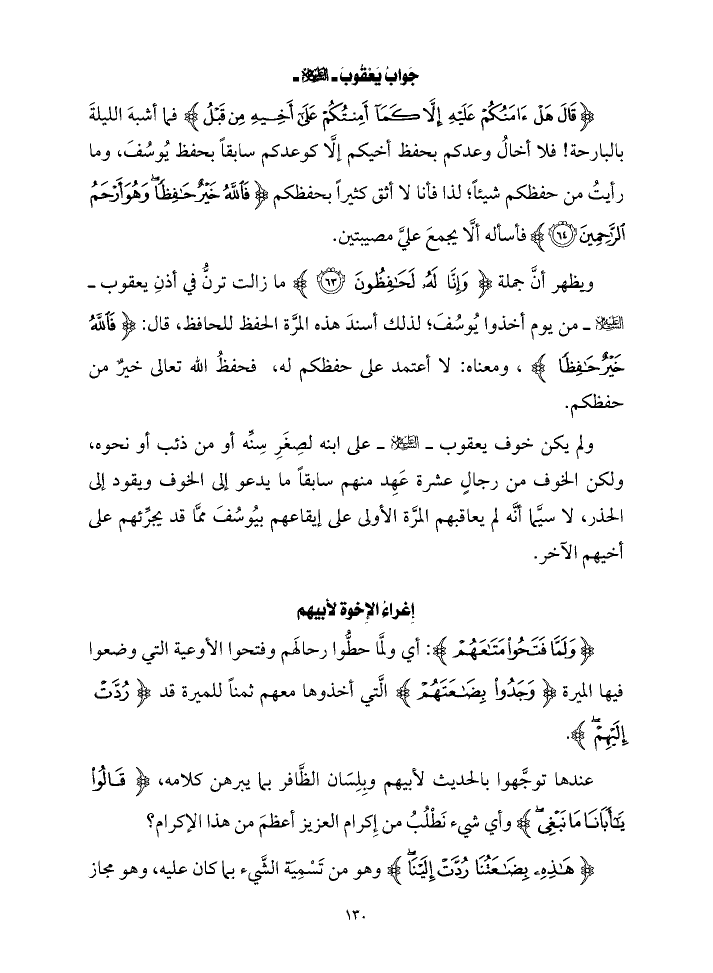 جَوابُ يَعْقُوبَ ـ ﷺ ـ
﴿ قَالَ هَلْ ءَامَنُكُمْ عَلَيْهِ إِلَّا كَمَآ أَمِنتُكُمْ عَلَىٰٓ أَخِيهِ مِن قَبْلُ ﴾ فما أشبهَ الليلةَ
بالبارحة! فلا أخالُ وعدكم بحفظ أخيكم إلَّا كوعدكم سابقاً بحفظ يُوسُفَ، وما
رأيتُ من حفظكم شيئاً؛ لذا فأنا لا أثق كثيراً بحفظكم ﴿ فَٱللَّهُ خَيْرٌ حَٰفِظًا ۖ وَهُوَ أَرْحَمُ
ٱلرَّٰحِمِينَ ٦٤ ﴾ فأسأله ألَّا يجمعَ عليَّ مصيبتين.
ويظهر أنَّ جملة ﴿ وَإِنَّا لَهُۥ لَحَٰفِظُونَ ٦٣ ﴾ ما زالت ترنُّ في أذنِ يعقوب ـ
ـ من يوم أخذوا يُوسُفَ؛ لذلك أسندَ هذه المرَّة الحفظ للحافظ، قال: ﴿ فَٱللَّهُ
خَيْرٌ حَٰفِظًا ﴾ ، ومعناه: لا أعتمد على حفظكم له، فحفظُ الله تعالى خيرٌ من
حفظكم.
ولم يكن خوف يعقوب ـ ـ على ابنه لصِغَرِ سِنِّه أو من ذئب أو نحوه،
ولكن الخوف من رجالٍ عشرة عَهِد منهم سابقاً ما يدعو إلى الخوف ويقود إلى
الحذر، لا سيَّما أنَّه لم يعاقبهم المرَّة الأولى على إيقاعهم بيُوسُفَ ممَّا قد يجرِّئهم على
أخيهم الآخر.
إغراءُ الإخوة لأبيهم
﴿ وَلَمَّا فَتَحُوا۟ مَتَٰعَهُمْ ﴾: أي ولمَّا حطُّوا رحالَهم وفتحوا الأوعية التي وضعوا
فيها الميرة ﴿ وَجَدُوا۟ بِضَٰعَتَهُمْ ﴾ الَّتي أخذوها معهم ثمناً للميرة قد ﴿ رُدَّتْ
إِلَيْهِمْ ۖ ﴾.
عندها توجَّهوا بالحديث لأبيهم وبِلِسَان الظَّافر بما يبرهن كلامه، ﴿ قَالُوا۟
يَٰٓأَبَانَا مَا نَبْغِى ۖ ﴾ وأي شيء نَطْلُبُ من إكرام العزيز أعظمَ من هذا الإكرام؟
﴿ هَٰذِهِۦ بِضَٰعَتُنَا رُدَّتْ إِلَيْنَا ۖ ﴾ وهو من تَسْمِيَة الشَّيء بما كان عليه، وهو مجاز
١٣٠